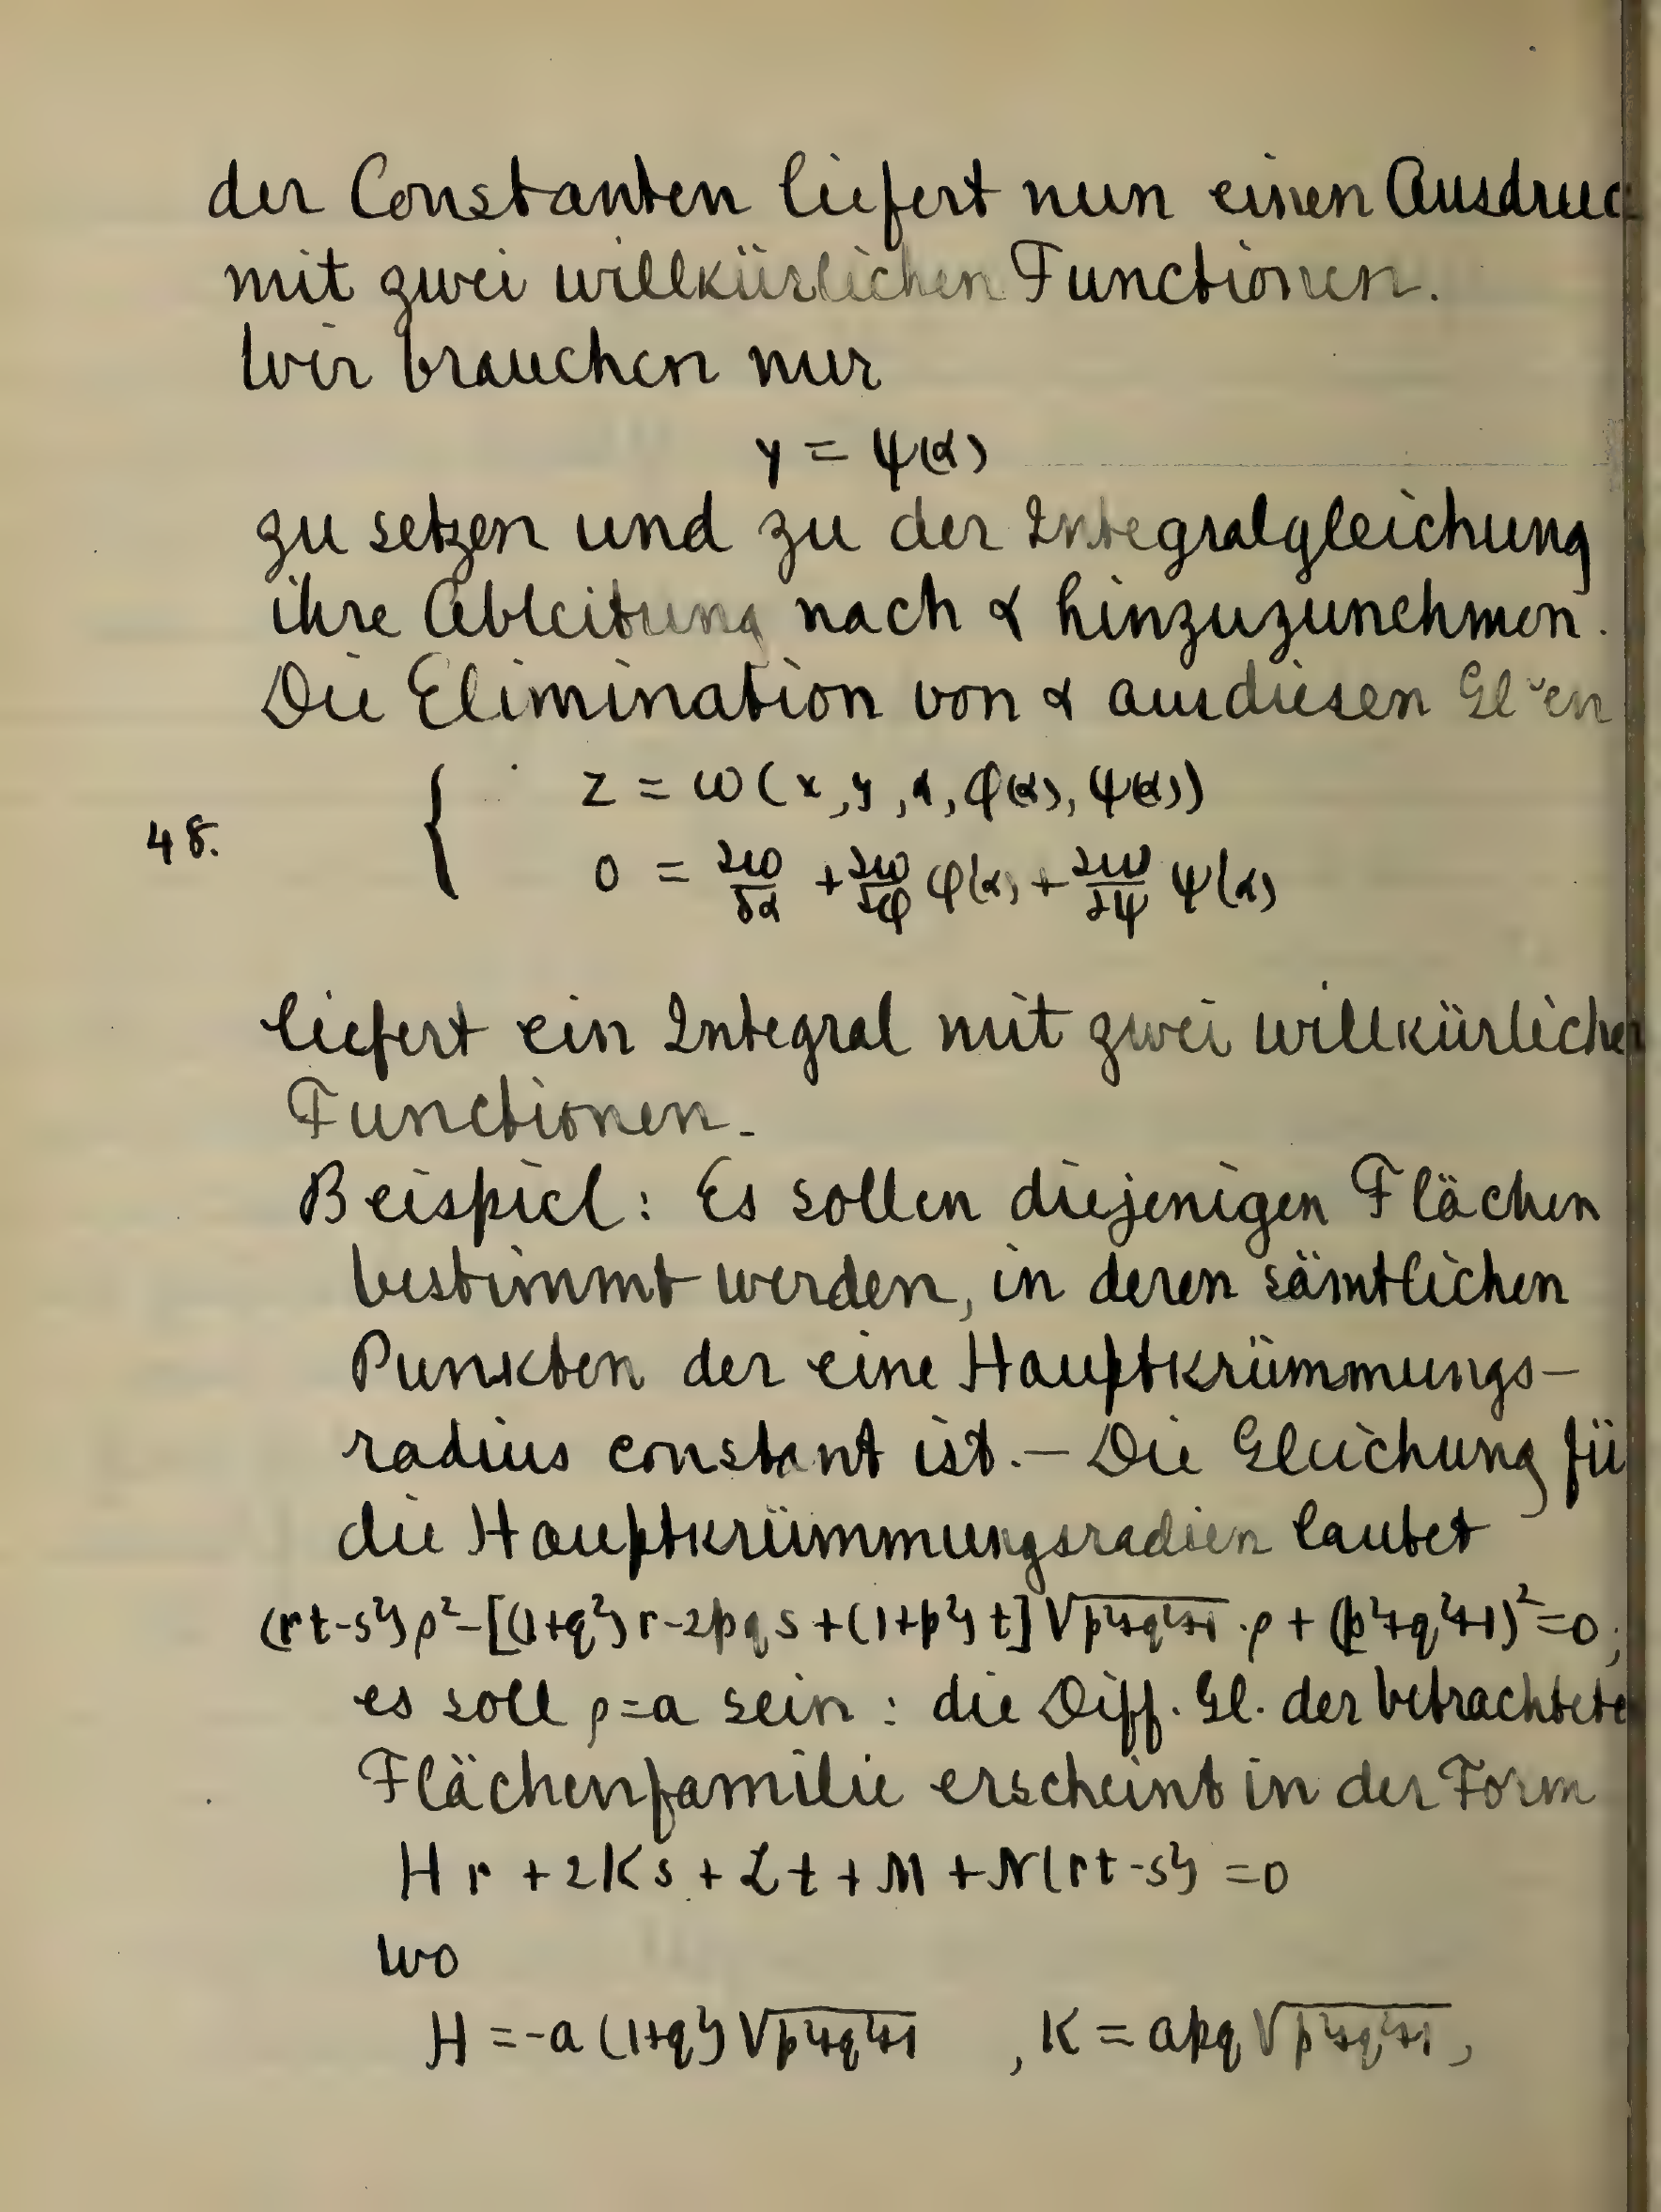 der Constanten liefert nun einen Ausdruc
mit zwei willkürlichen Functionen.
Wir brauchen nur
γ = ψ(α)
zu setzen und zu der Integralgleichung
ihre Ableitung nach α hinzuzunehmen.
Die Elimination von α aus diesen Gl˘en
z = ω(x, y, α, φ(α), ψ(α))
48.
0 = ∂ω/∂α + ∂ω/∂φ φ(α) + ∂ω/∂ψ ψ(α)
liefert ein Integral mit zwei willkürlichen
Functionen.
Beispiel: Es sollen diejenigen Flächen
bestimmt werden, in deren sämtlichen
Punkten der eine Hauptkrümmungs-
radius constant ist. – Die Gleichung fü
die Hauptkrümmungsradien lautet
(rt-s²)ρ² - [(1+q²)r - 2pqs + (1+p²)t] √p²+q²+1 · ρ + (p²+q²+1)² = 0;
es soll ρ=a sein: die Diff. Gl. der betrachtete
Flächenfamilie erscheint in der Form
Hr + 2Ks + Lt + M + N(rt-s²) = 0
wo
H = -a(1+q²) √p²+q²+1 , K = apq √p²+q²+1,